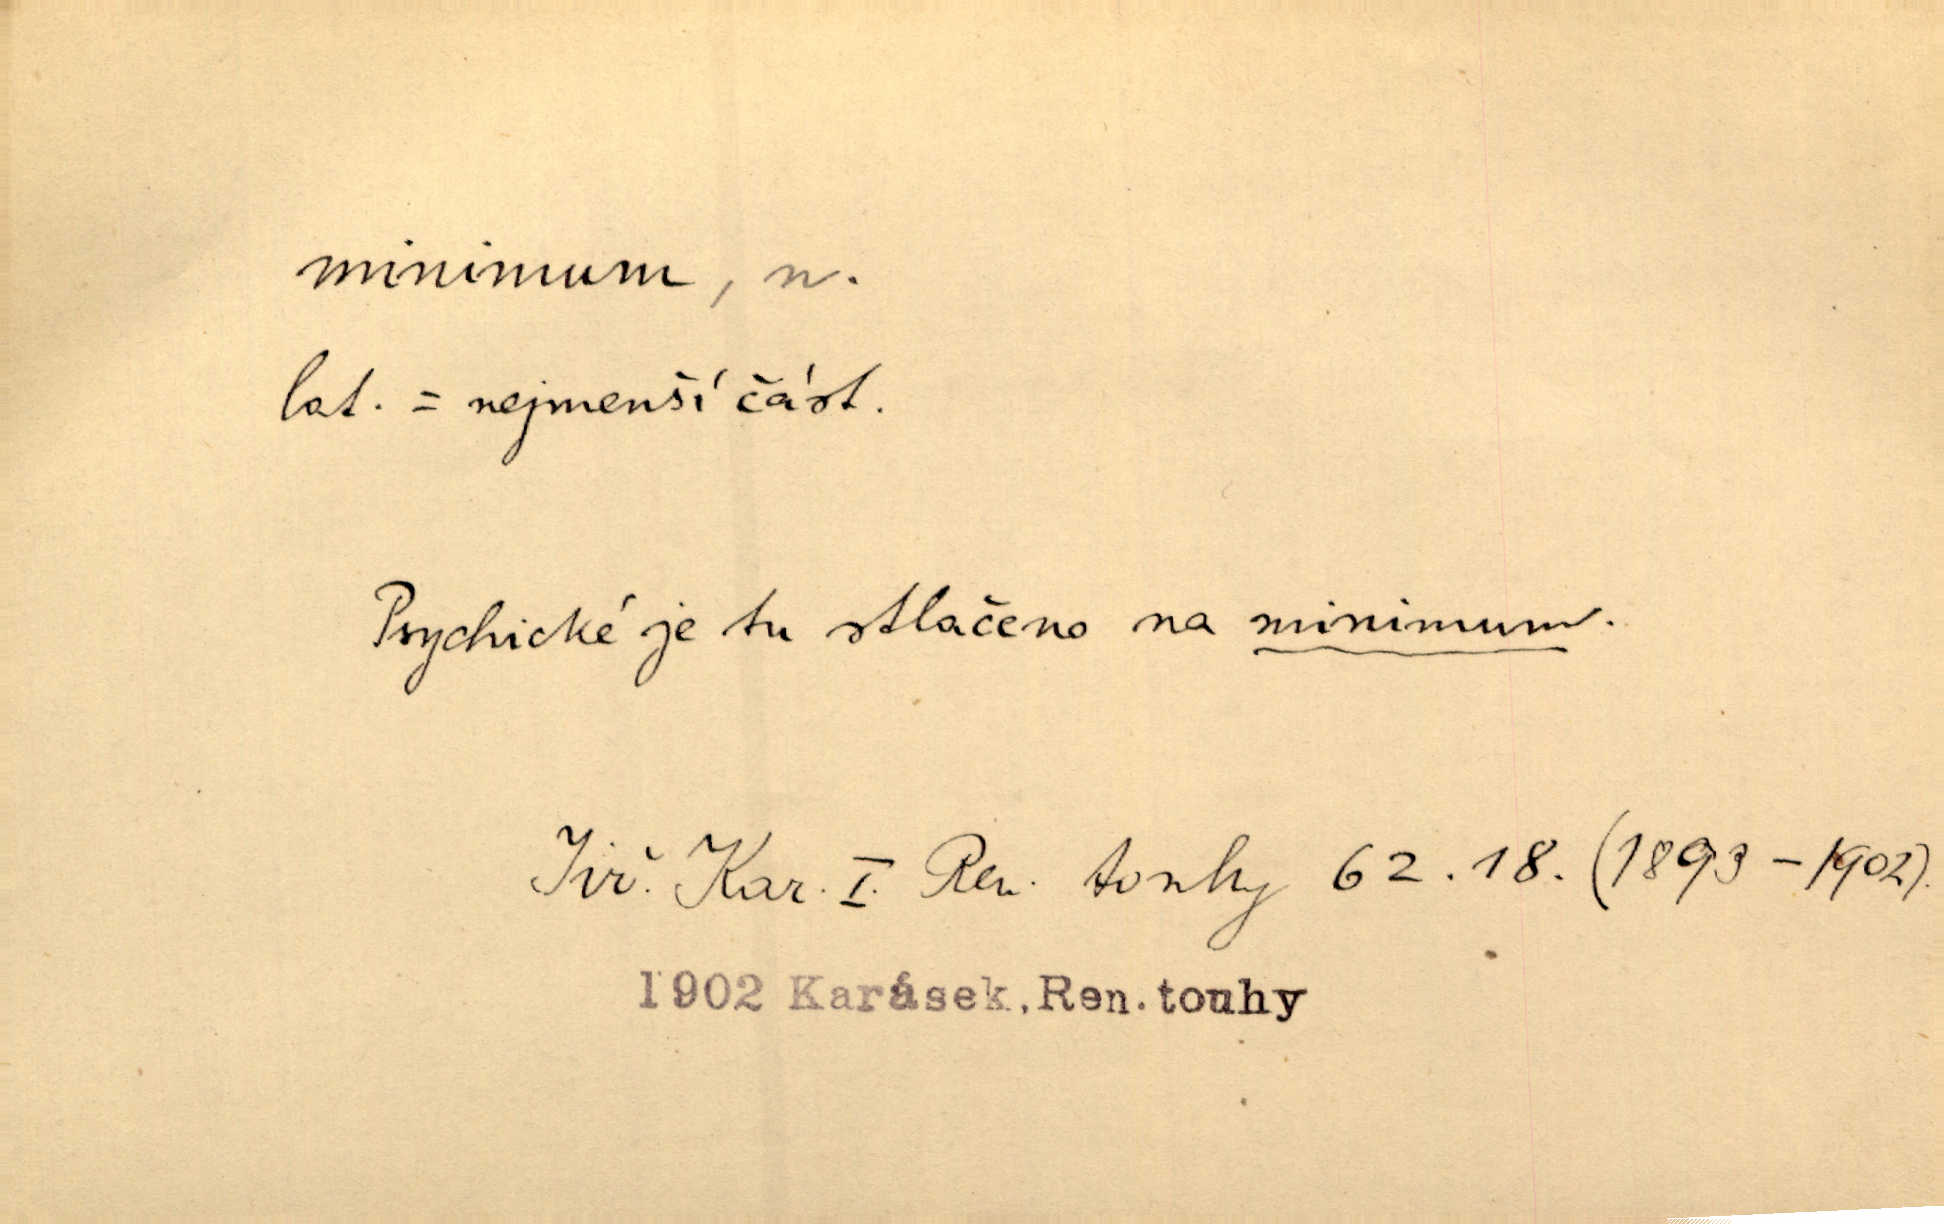 minimum, n.
lat. = nejmenší část.
Psychické je tu stlačeno na minimum.
Jiř. Kar. I. Ren. touhy 62.18. (1893 - 1902).
1902 Karásek, Ren. touhy